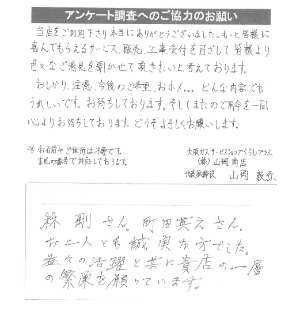 アンケート調査へのご協力のお願い
当店をご利用下さり本当にありがとうございました。もっと皆様に
喜んでもらえるサービス、販売、工事受付を目ざして皆様より
色々なご意見を聞かせて頂きたいと考えております。
おしかり、注意、今後のご希望、おホメ... どんな内容でも
うれしいです。お待ちしております。そしてまたのご用命を一同
心よりお待ちしております。どうぞよろしくお願いします。
大阪ガスサービスショップ
(株)山岡商店
山岡
森 剛さん、町田英之さん、
お二人とも誠実な方でした。
益々の活躍と共に貴店の一層
の繁栄を願っています。